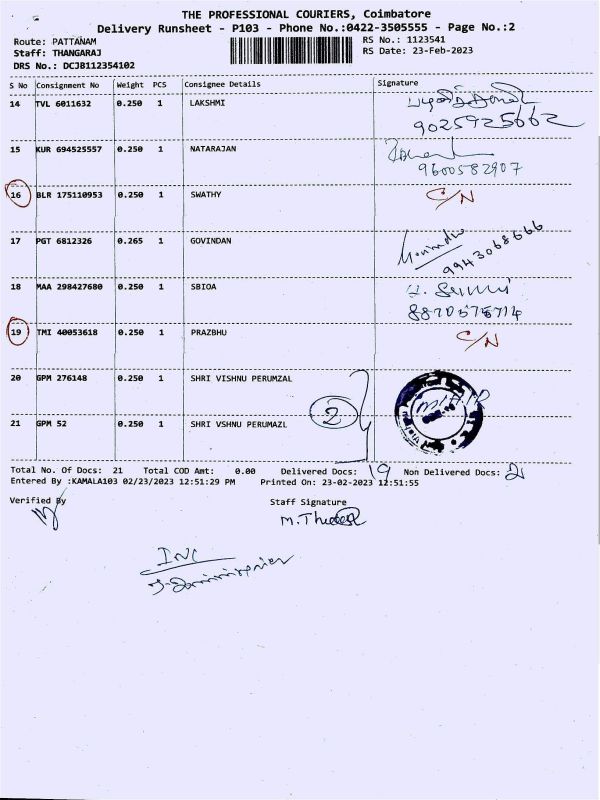 THE PROFESSIONAL COURIERS, Coimbatore
Delivery Runsheet - P103 - Phone No.:0422-3505555 - Page No.:2
Route: PATTANAM
RS No.: 1123541
Staff: THANGARAJ
RS Date: 23-Feb-2023
DRS No.: DCJB112354102
S No Consignment No Weight PCS Consignee Details Signature
14 TVL 6011632 0.250 1 LAKSHMI
9025925662
15 KUR 694525557 0.250 1 NATARAJAN
9600582907
16 BLR 175110953 0.250 1 SWATHY C/N
17 PGT 6812326 0.265 1 GOVINDAN
9943068666
18 MAA 298427680 0.250 1 SBIOA
8870575714
19 TMI 40053618 0.250 1 PRAZBHU C/N
20 GPM 276148 0.250 1 SHRI VISHNU PERUMZAL
2
21 GPM 52 0.250 1 SHRI VSHNU PERUMAZL
Total No. Of Docs: 21 Total COD Amt: 0.00 Delivered Docs: 19 Non Delivered Docs: 2
Entered By :KAMALA103 02/23/2023 12:51:29 PM Printed On: 23-02-2023 12:51:55
Verified By Staff Signature
INC